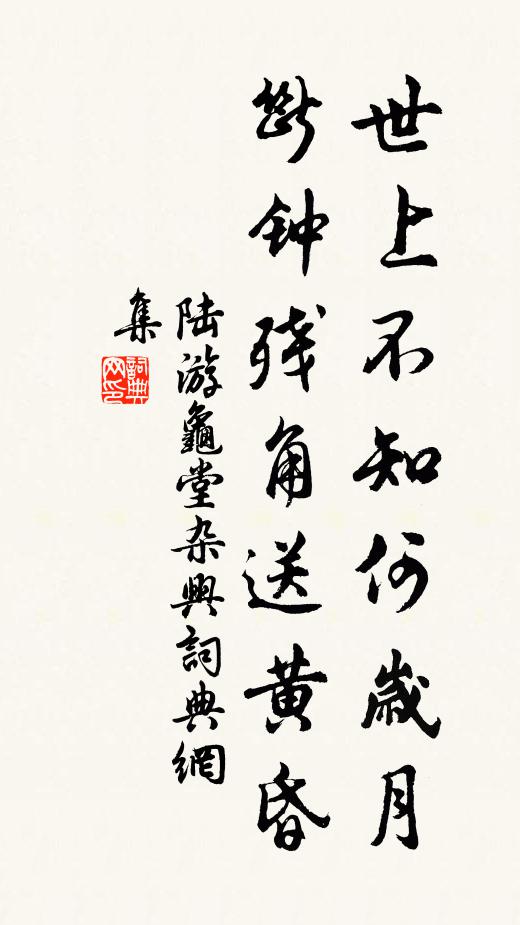 世上不知何歳月
断钟残角送黄昏
陆游龜堂杂興詞典網
集
詞典网印